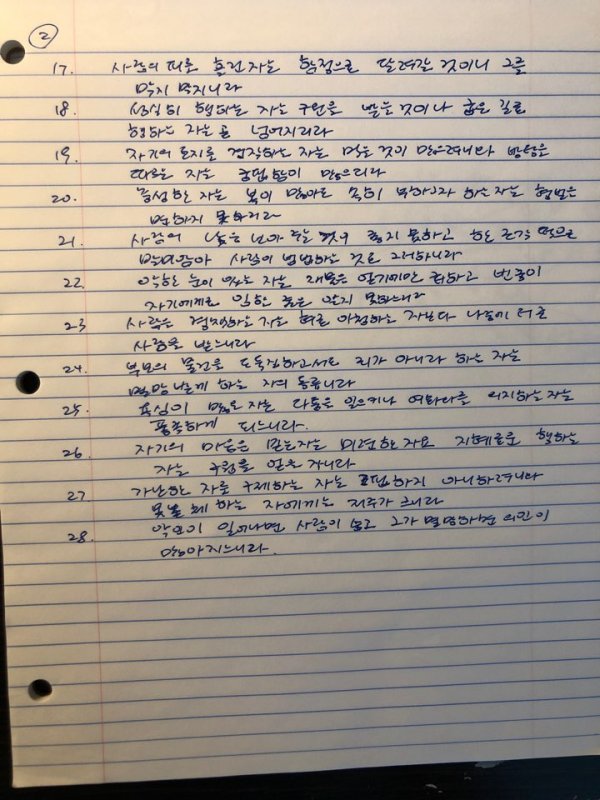 ②
17. 사람의 피를 흘린 자는 함정으로 달려갈 것이니 그를
막지 말지니라
18. 성실히 행하는 자는 구원을 받을 것이나 굽은 길로
행하는 자는 곧 넘어지리라
19. 자기의 토지를 경작하는 자는 먹을 것이 많으려니와 방탕을
따르는 자는 궁핍함이 많으리라
20. 충성된 자는 복이 많아도 속히 부하고자 하는 자는 형벌을
면하지 못하리라
21. 사람의 낯을 보아 주는 것이 좋지 못하고 한 조각 떡으로
말미암아 사람이 범법하는 것도 그러하니라
22. 악한 눈이 있는 자는 재물을 얻기에만 급하고 빈궁이
자기에게로 임할 줄은 알지 못하느니라
23 사람을 경책하는 자는 혀로 아첨하는 자보다 나중에 더욱
사랑을 받느니라
24. 부모의 물건을 도둑질하고서도 죄가 아니라 하는 자는
멸망 받게 하는 자의 동류니라
25. 욕심이 많은 자는 다툼을 일으키나 여호와를 의지하는 자는
풍족하게 되느니라.
26 자기의 마음을 믿는 자는 미련한 자요 지혜롭게 행하는
자는 구원을 얻을 자니라
27 가난한 자를 구제하는 자는 궁핍하지 아니하려니와
못 본 체 하는 자에게는 저주가 크니라
28. 악인이 일어나면 사람이 숨고 그가 멸망하면 의인이
많아지느니라.